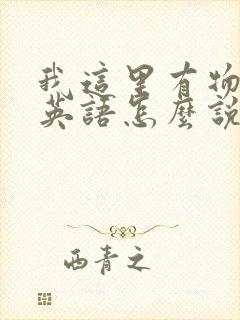 我這里有物
英語怎麼說
西青之